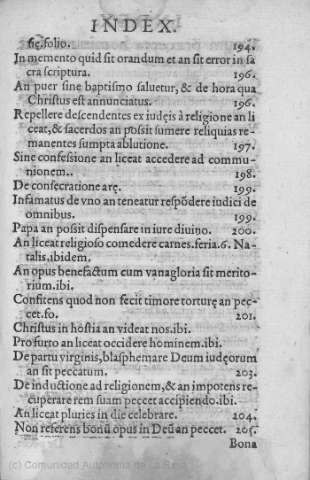 INDEX.
fię.folio. 194.
In memento quid sit orandum et an sit error in sa
cra scriptura. 196.
An puer sine baptismo saluetur, & de hora qua
Christus est annunciatus. 196.
Repellere descendentes ex iudęis à religione an li
ceat, & sacerdos an possit sumere reliquias re-
manentes sumpta ablutione. 197.
Sine confessione an liceat accedere ad commu-
nionem.. 198.
De consecratione arę. 199.
Infamatus de vno an teneatur respõdere iudici de
omnibus. 199.
Papa an possit dispensare in iure diuino. 200.
An liceat religioso comedere carnes.feria.6. Na-
talis,ibidem.
An opus benefactum cum vanagloria sit merito-
rium.ibi.
Confitens quod non fecit timore torturę an pec-
cet.fo. 201.
Christus in hostia an videat nos.ibi.
Pro furto an liceat occidere hominem.ibi.
De partu virginis, blasphemare Deum iudęorum
an sit peccatum. 203.
De inductione ad religionem, & an impotens re-
cuperare rem suam peccet accipiendo.ibi.
An liceat pluries in die celebrare. 204.
Non referens bonũ opus in Deũ an peccet. 205.
Bona
(c) Comunidad Autónoma de La Rioja